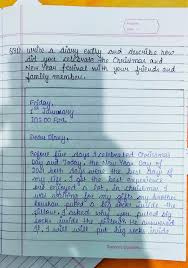 Write a diary entry and describe how
did you celebrate the Christmas and
New Year festival with your friends and
family members.
Friday,
January
10:00 P.M.
Dear Diary,
Before five days I celebrated Christmas
Day and Today, the New Year Day of
both days were the best days of
my life. I got the best experience
and enjoyed a lot. in Christmas I
was waiting for my gifts my brother
put a big socks inside the
pillows, I asked why you puted big
socks inside the pillows he answered
if, I will will put big socks inside